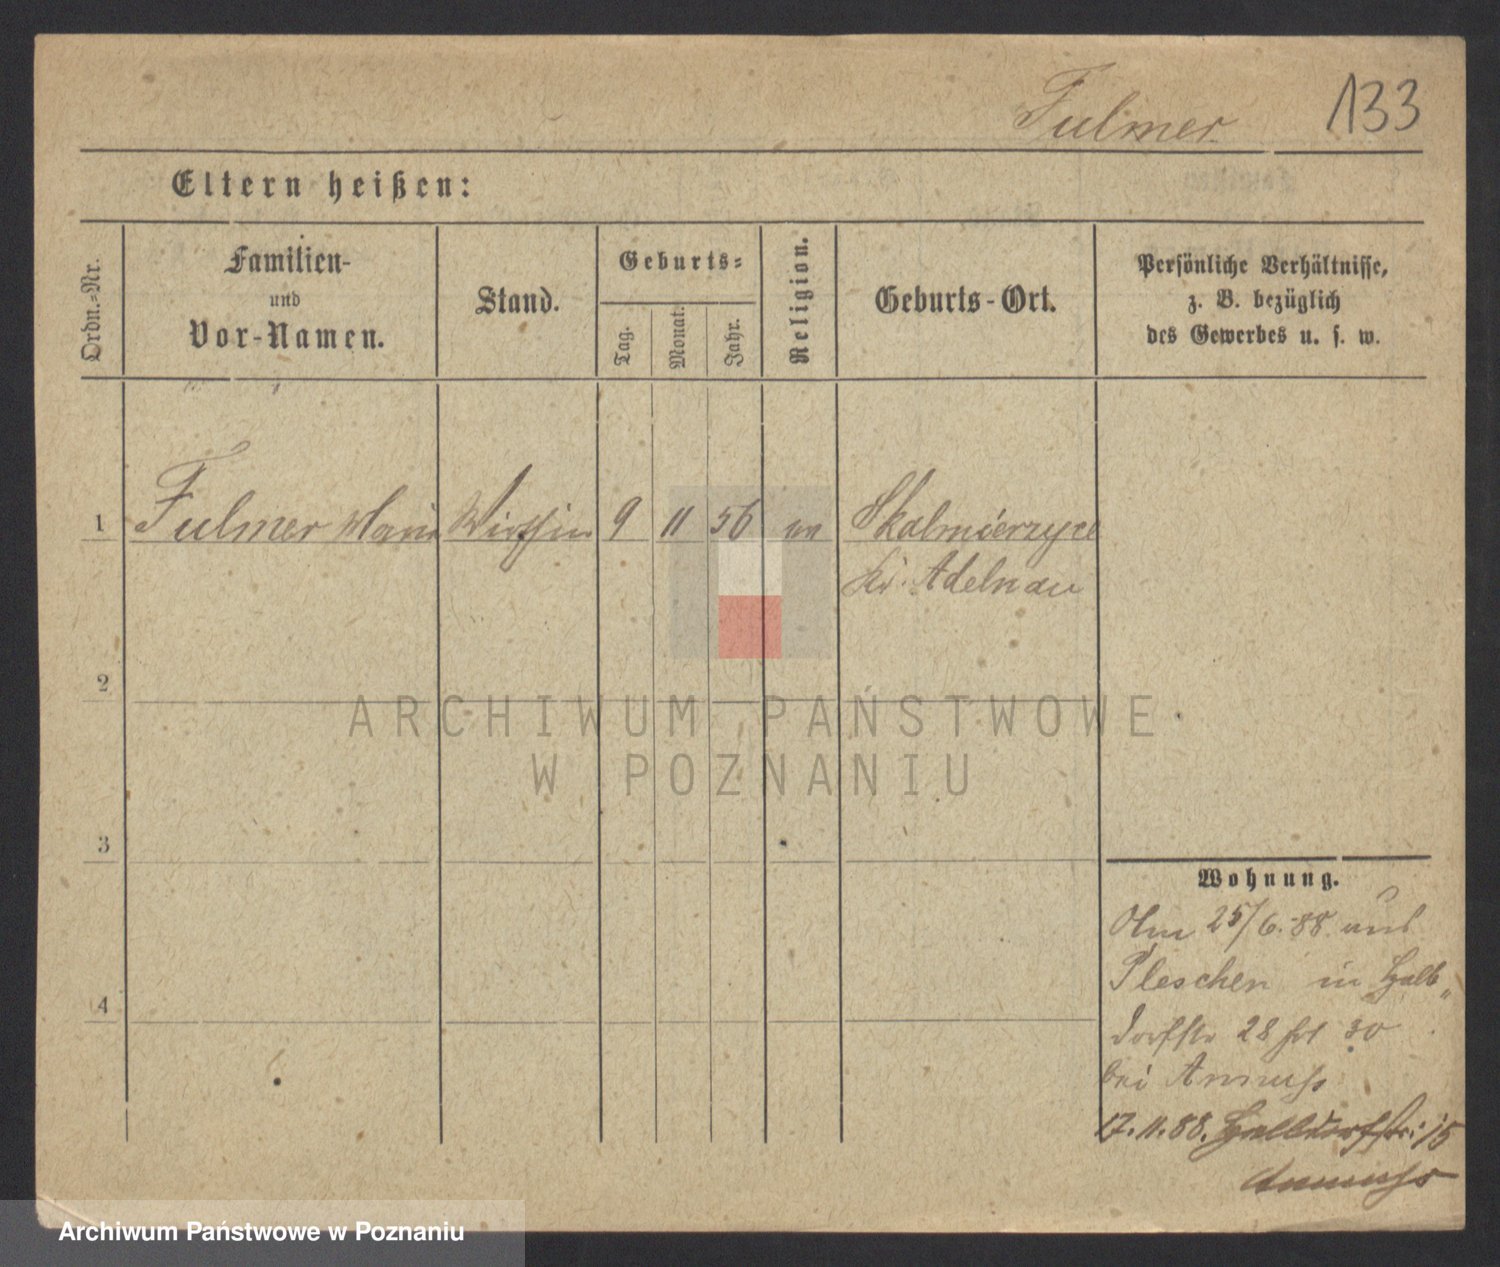 Fulmer 133
Eltern heißen:
Ordn.=Nr.
Familien-
und
Vor-Namen.
Stand.
Geburts=
Tag.
Monat.
Jahr.
Religion.
Geburts-Ort.
Persönliche Verhältnisse,
z. B. bezüglich
des Gewerbes u. s. w.
1 Fulmer Marie Wirthin 9 11 56 Skalmierzyce
Kr. Adelnau
2
ARCHIWUM PAŃSTWOWE
W POZNANIU
3
Wohnung.
25/6.88. aus
Pleschen in Halb„
dorfstr 28 30
4
bei Annuss
17.11.88. Halbdorfstr: 15
Annuss
Archiwum Państwowe w Poznaniu